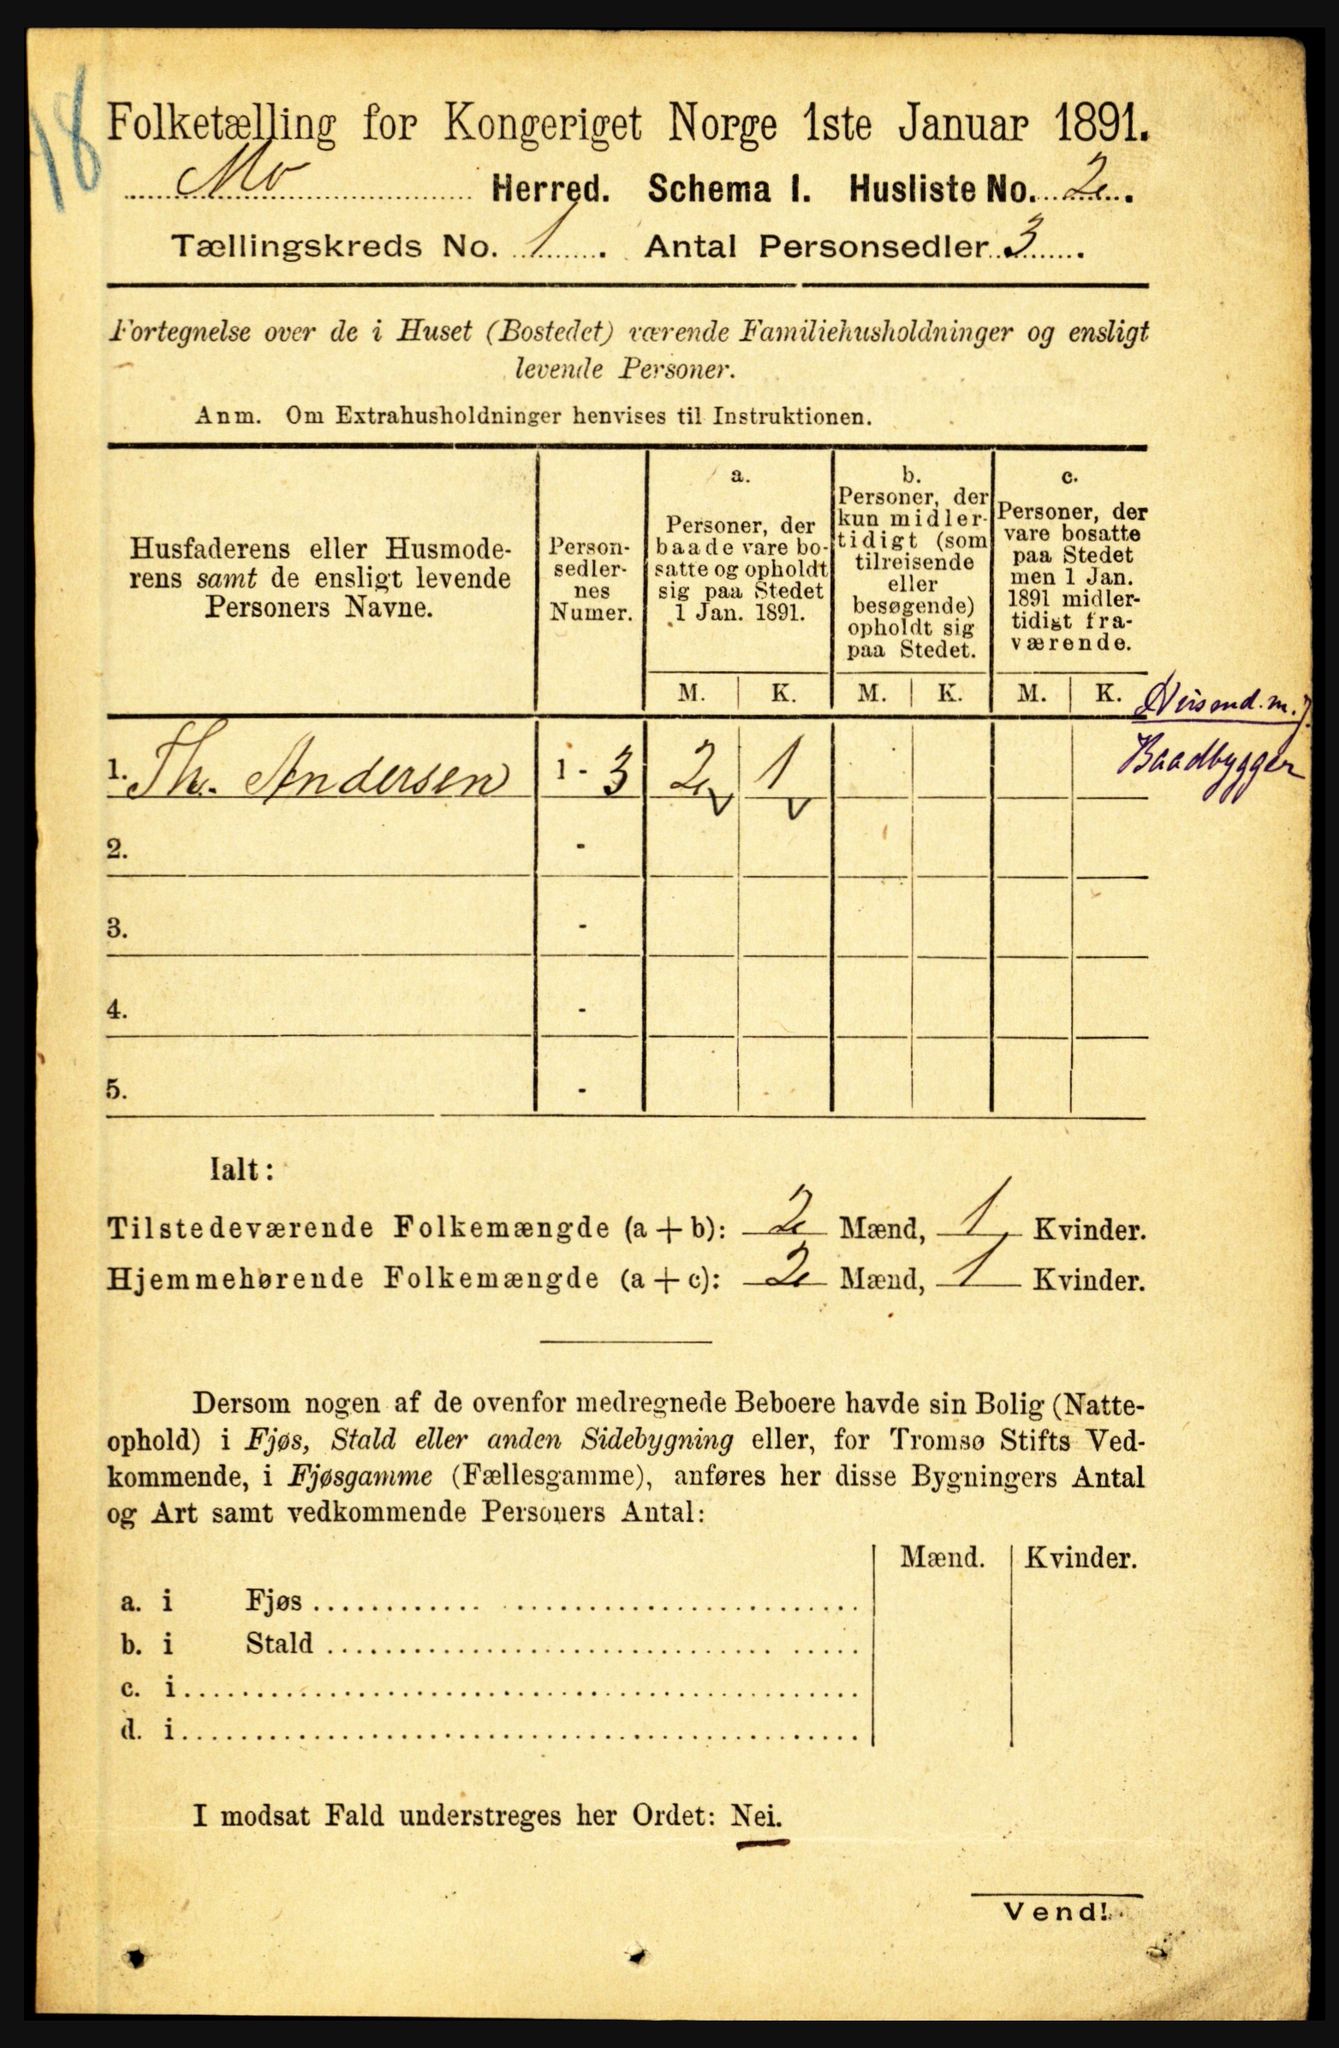 18
Folketælling for Kongeriget Norge 1ste Januar 1891.
Mo Herred. Schema I. Husliste No. 2.
Tællingskreds No. 1. Antal Personsedler 3.
Fortegnelse over de i Huset (Bostedet) værende Familiehusholdninger og ensligt
levende Personer.
Anm. Om Extrahusholdninger henvises til Instruktionen.
Husfaderens eller Husmode-
rens samt de ensligt levende
Personers Navne.
Person-
sedler-
nes
Numer.
a.
Personer, der
baade vare bo-
satte og opholdt
sig paa Stedet
1 Jan. 1891.
b.
Personer, der
kun midler-
tidigt (som
tilreisende
eller
besøgende)
opholdt sig
paa Stedet.
c.
Personer, der
vare bosatte
paa Stedet
men 1 Jan.
1891 midler-
tidigt fra-
værende.
M. K. M. K. M. K.
Baadbygger
1. Th. Andersen 1 - 3 2 1
2. -
3. -
4. -
5. -
Ialt:
Tilstedeværende Folkemængde (a + b): 2 Mænd, 1 Kvinder.
Hjemmehørende Folkemængde (a + c): 2 Mænd, 1 Kvinder.
Dersom nogen af de ovenfor medregnede Beboere havde sin Bolig (Natte-
ophold) i Fjøs, Stald eller anden Sidebygning eller, for Tromsø Stifts Ved-
kommende, i Fjøsgamme (Fællesgamme), anføres her disse Bygningers Antal
og Art samt vedkommende Personers Antal:
Mænd. Kvinder.
a. i Fjøs
b. i Stald
c. i
d. i
I modsat Fald understreges her Ordet: Nei.
Vend!